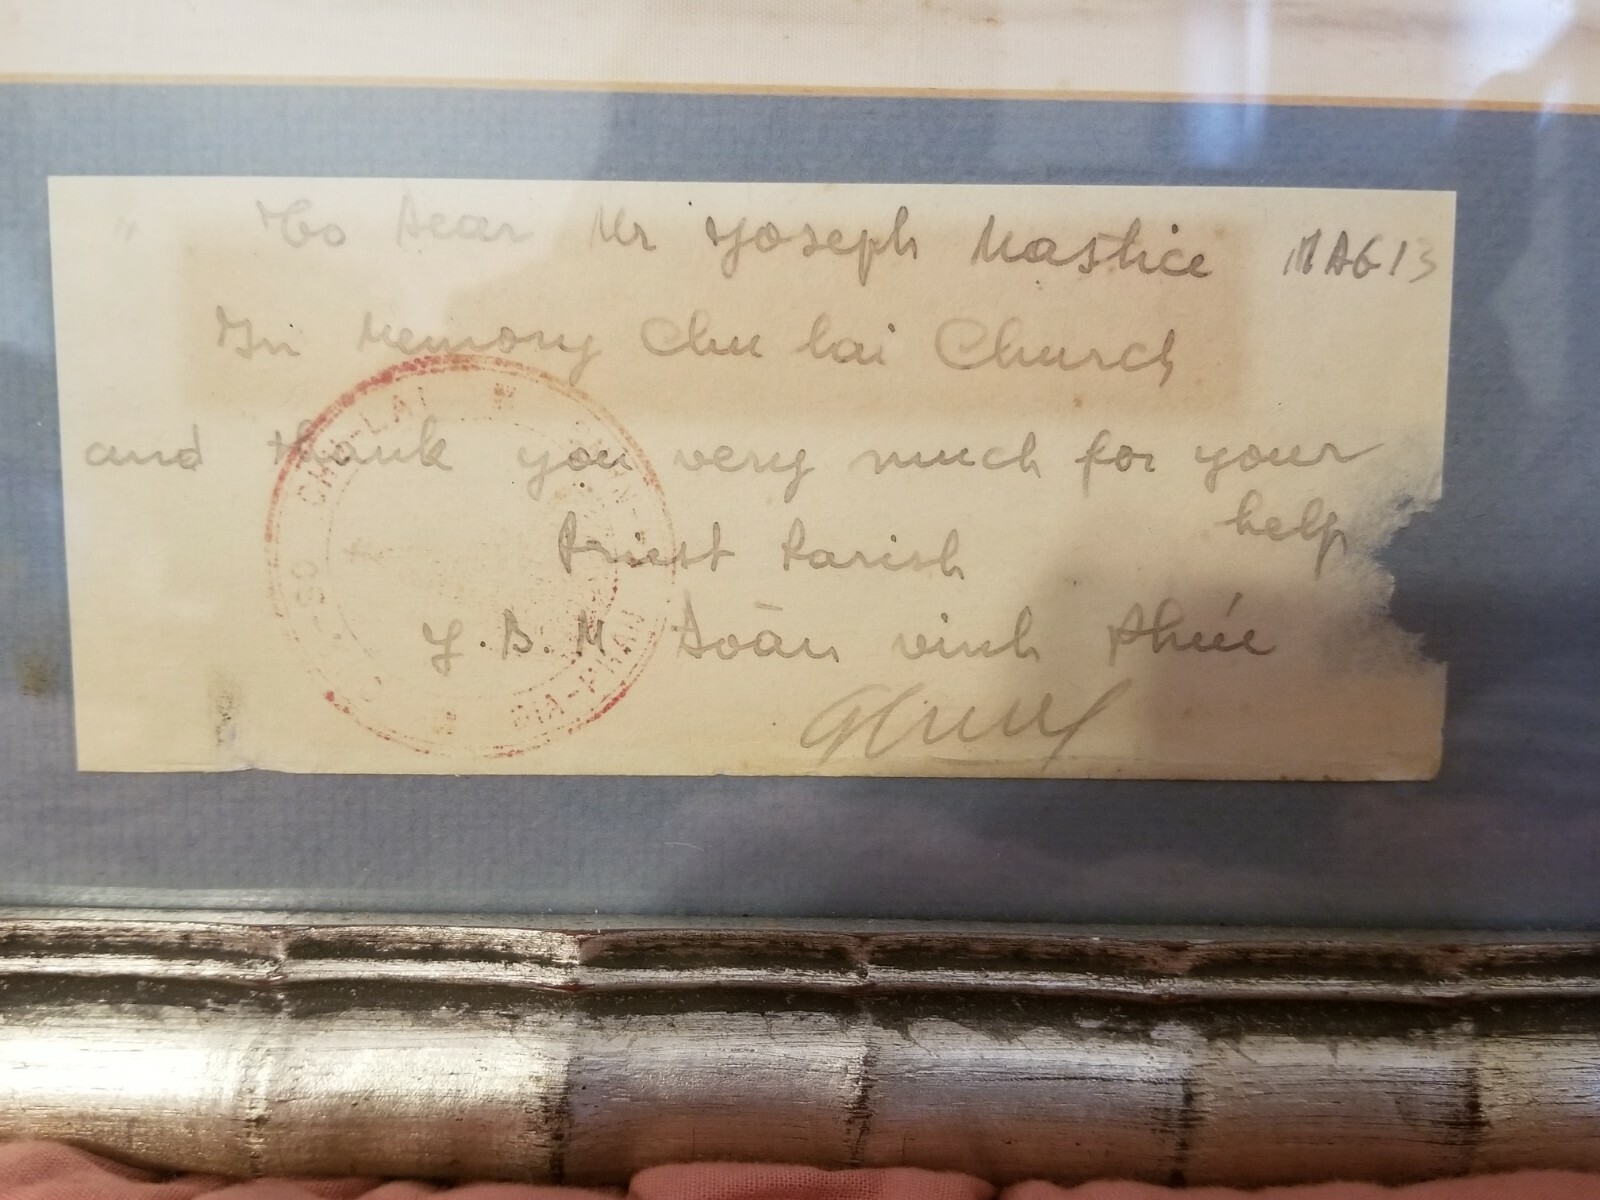 To Dear Mr Joseph Mastice MAG 13
In Memory Chu lai Church
and thank you very much for your
help
Priest Parish
J.B.M. Đoàn vinh Phúc
CHU-LAI